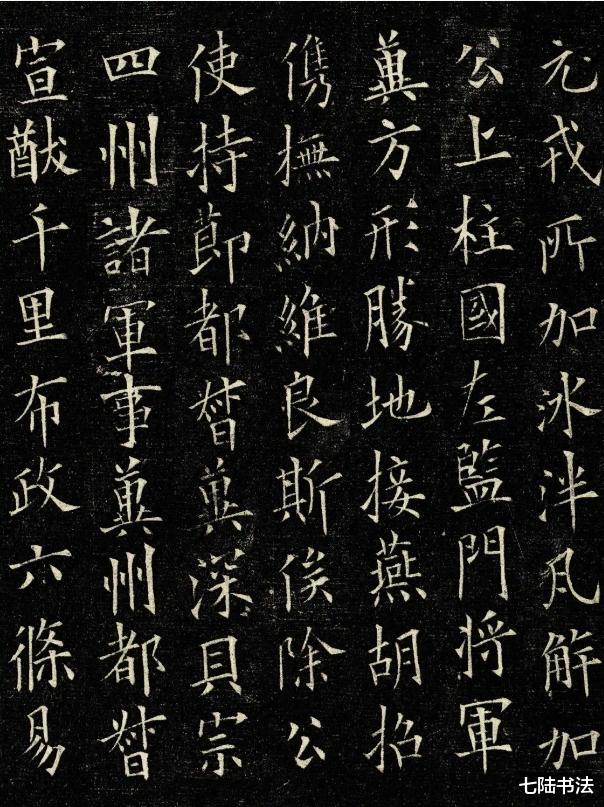 元戎所加冰泮凡解加
公上柱國左監門將軍
冀方形勝地接燕胡招
儁撫納維良斯俟除公
使持莭都督冀深貝宗
四州諸軍事冀州都督
宣猷千里布政六條易
七陆书法